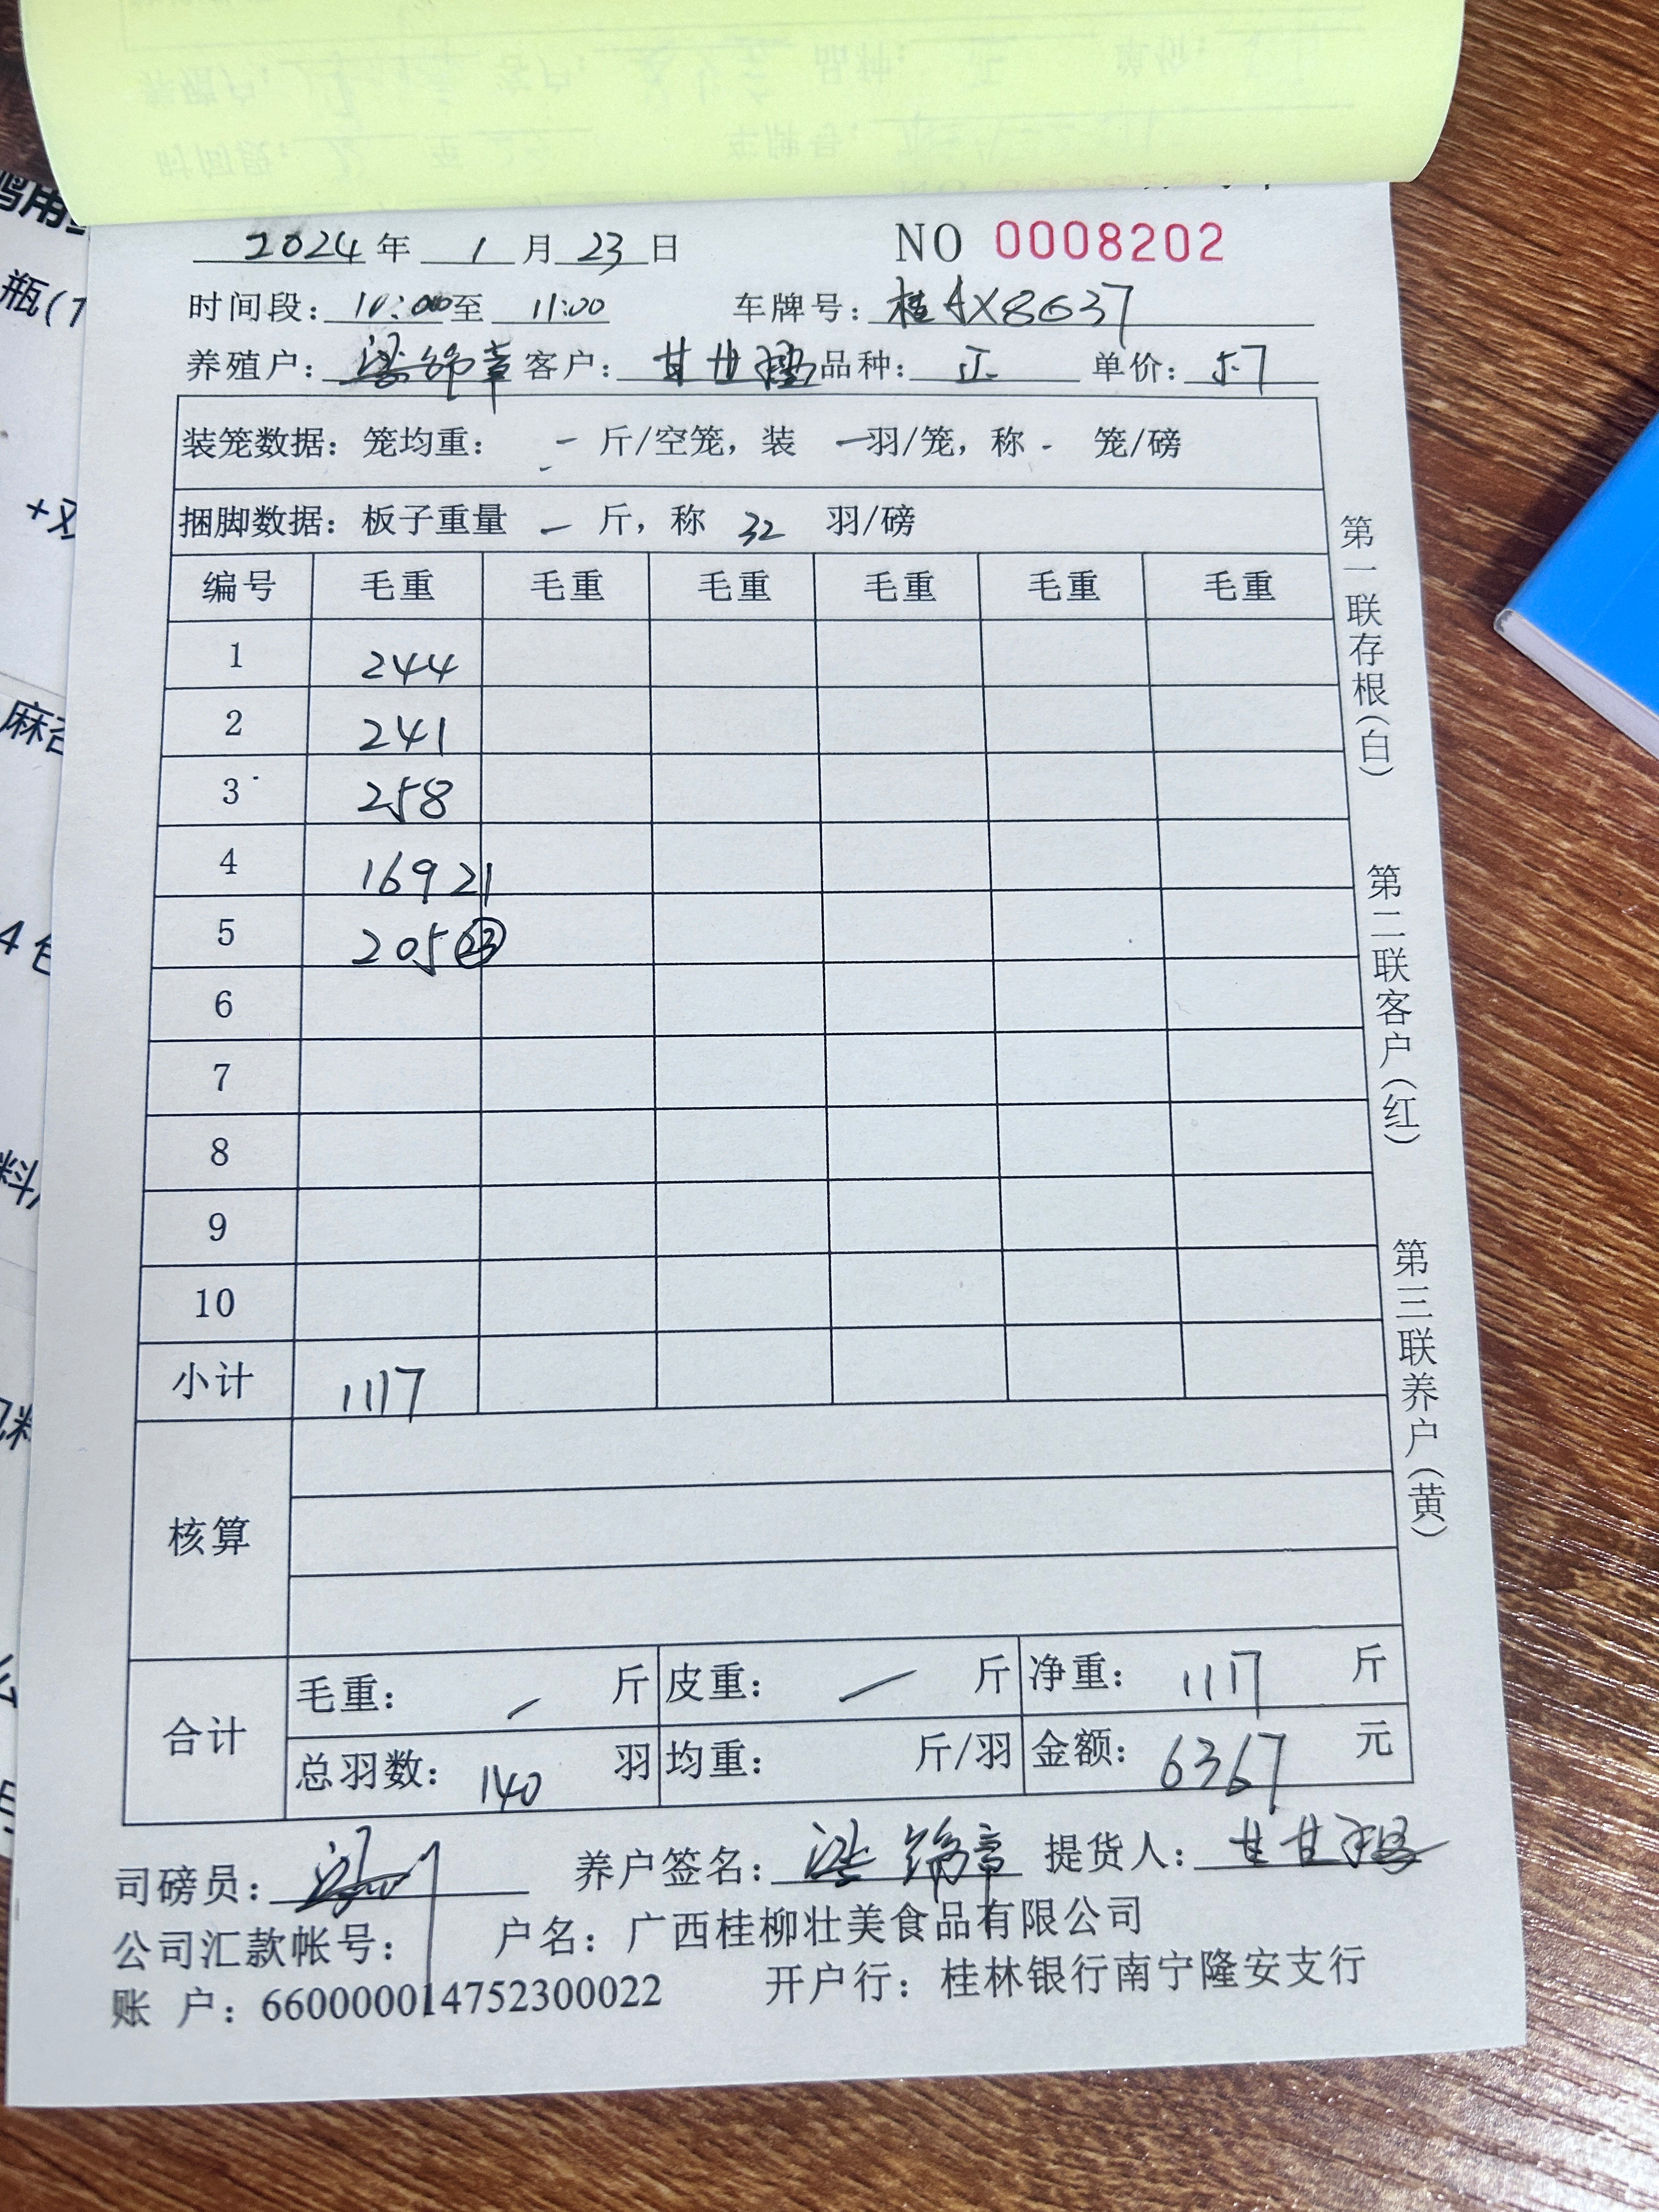 2024年 1月23日 NO 0008202
时间段: 10:00至 11:00 车牌号: 桂AX8637
养殖户: 梁锦章 客户: 甘甘 品种: 正 单价: 5.7
装笼数据: 笼均重: - 斤/空笼, 装 一羽/笼, 称 - 笼/磅
捆脚数据: 板子重量 - 斤, 称 32 羽/磅
编号 毛重 毛重 毛重 毛重 毛重 毛重
1 244
2 241
3 258
4 169 21
5 205 23
6
7
8
9
10
小计 1117
核算
合计
毛重: - 斤 皮重: - 斤 净重: 1117 斤
总羽数: 140 羽 均重: 斤/羽 金额: 6367 元
司磅员: 养户签名: 梁锦章 提货人: 甘甘
公司汇款帐号: 户名: 广西桂柳壮美食品有限公司
账 户: 660000014752300022 开户行: 桂林银行南宁隆安支行
第一联存根(白)
第二联客户(红)
第三联养户(黄)
瓶(1
+双
麻
4
料
料